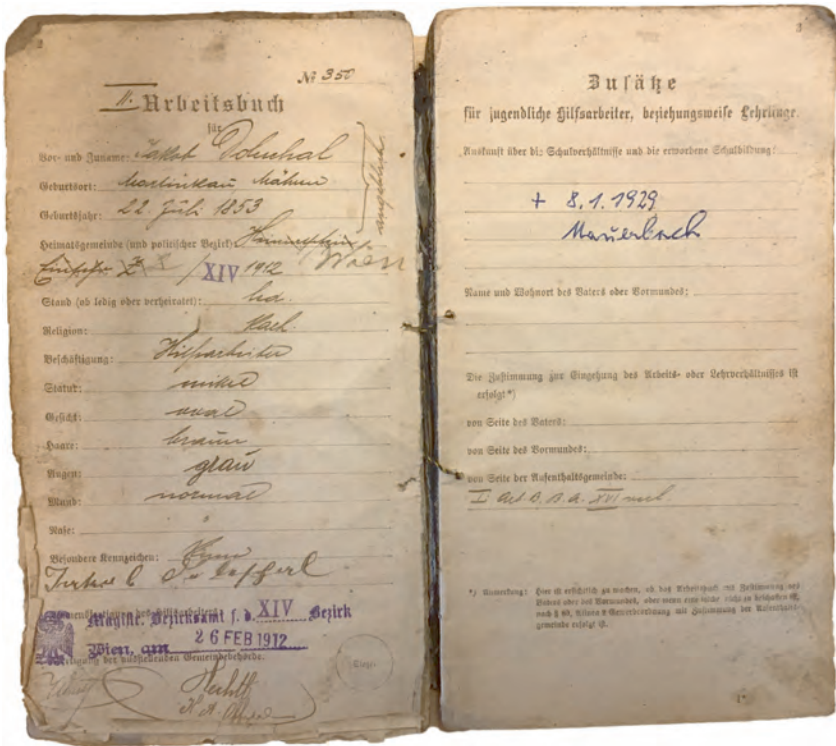 2
№ 350
II. Arbeitsbuch
für
Vor- und Zuname: Jakob
Geburtsort: Mähren
Geburtsjahr: 22. Juli 1853
Heimatsgemeinde (und politischer Bezirk): Wien
XIV 1912
Stand (ob ledig oder verheiratet): led.
Religion: kath.
Beschäftigung: Hilfsarbeiter
Statur: mittel
Gesicht: oval
Haare: braun
Augen: grau
Mund: normal
Nase: "
Besondere Kennzeichen: Keine
des Hilfsarbeiters
Magistr. Bezirksamt f. d. XIV Bezirk
Wien, am 26 FEB 1912
der ausstellenden Gemeindebehörde.
3
Zusätze
für jugendliche Hilfsarbeiter, beziehungsweise Lehrlinge.
Auskunft über die Schulverhältnisse und die erworbene Schulbildung:
+ 8.1.1929
Mauerbach
Name und Wohnort des Vaters oder Vormundes:
Die Zustimmung zur Eingehung des Arbeits- oder Lehrverhältnisses ist
erfolgt*)
von Seite des Vaters:
von Seite des Vormundes:
von Seite der Aufenthaltsgemeinde:
XVI
*) Anmerkung: Hier ist ersichtlich zu machen, ob das Arbeitsbuch mit Zustimmung des
Vaters oder des Vormundes, oder wenn eine solche nicht zu beschaffen ist,
nach § 80, Gewerbeordnung mit Zustimmung der Aufenthalts-
gemeinde erfolgt ist.
1*